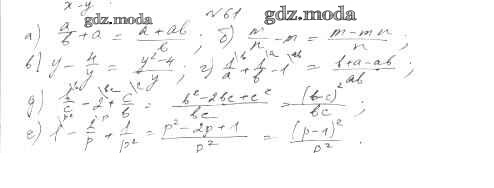 x-y
gdz.moda
№61
gdz.moda
а) a/b + a = (a+ab)/b ; б) m/n - m = (m-mn)/n ;
в) y - 4/y = (y²-4)/y ; г) 1\b/a + 1\a/b - 1\ab = (b+a-ab)/ab
д) b\b/c - 2\bc + c\c/b = (b²-2bc+c²)/bc = (b-c)²/bc ;
е) 1 - 2/p + 1/p² = (p²-2p+1)/p² = (p-1)²/p² .